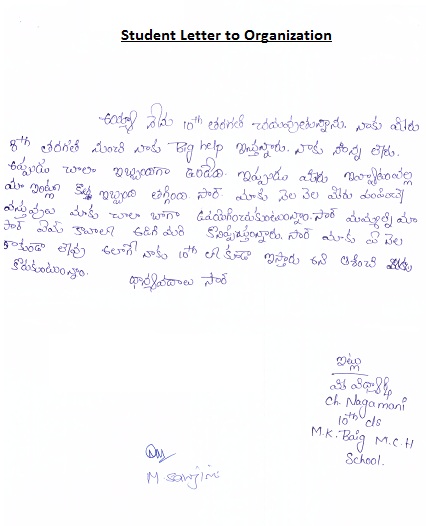 Student Letter to Organization
అయ్యా నేను 10th తరగతి చదువుతున్నాను. నాకు మీరు
8th తరగతి నుంచి నాకు Big help ఇస్తున్నారు. నాకు నాన్న లేరు.
అప్పుడు చాలా ఇబ్బందిగా ఉండేది. ఇప్పుడు మీరు ఇవ్వటంవల్ల
మా ఇంట్లో కొచ్చెం ఇబ్బంది తగ్గింది సార్. మాకు నెల నెల మీరు పంపించే
వస్తువులు మాకు చాలా బాగా ఉపయోగించుకుంటున్నాం. సార్ మమ్మల్ని మా
సార్ ఏమి కావాలి అడిగి మరి కొనిప్పిస్తున్నారు. సార్ మాకు ఈ నెల
కాకుండా లేదా అలాగే నాకు 10th లో కూడా ఇస్తారు అని ఆశించి
కోరుకుంటున్నాం.
ధాన్యవాదాలు సార్
ఇట్లు
మీ విద్యార్థిని
Ch. Nagamani
10th cls
M.K. Baig M.C.H
School.
M